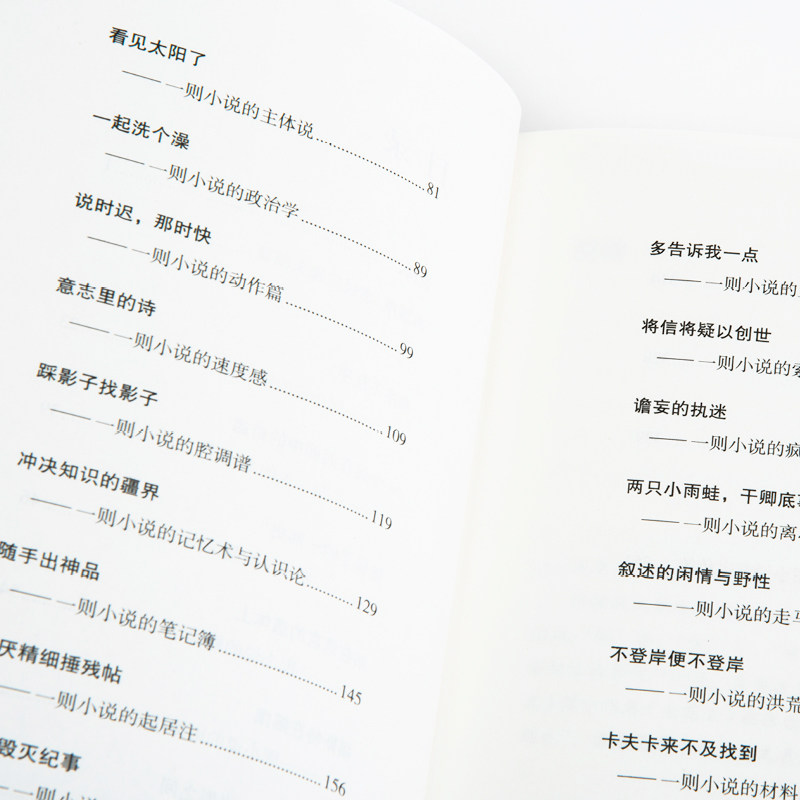 看见太阳了
——一则小说的主体说……81
一起洗个澡
——一则小说的政治学……89
说时迟，那时快
——一则小说的动作篇……99
意志里的诗
——一则小说的速度感……109
踩影子找影子
——一则小说的腔调谱……119
冲决知识的疆界
——一则小说的记忆术与认识论……129
随手出神品
——一则小说的笔记簿……145
厌精细捶残帖
——一则小说的起居注……156
毁灭纪事
——一则小说的
多告诉我一点
——一则小说的
将信将疑以创世
——一则小说的索
谵妄的执迷
——一则小说的疯
两只小雨蛙，干卿底
——一则小说的离
叙述的闲情与野性
——一则小说的走马
不登岸便不登岸
——一则小说的洪荒
卡夫卡来不及找到
——一则小说的材料